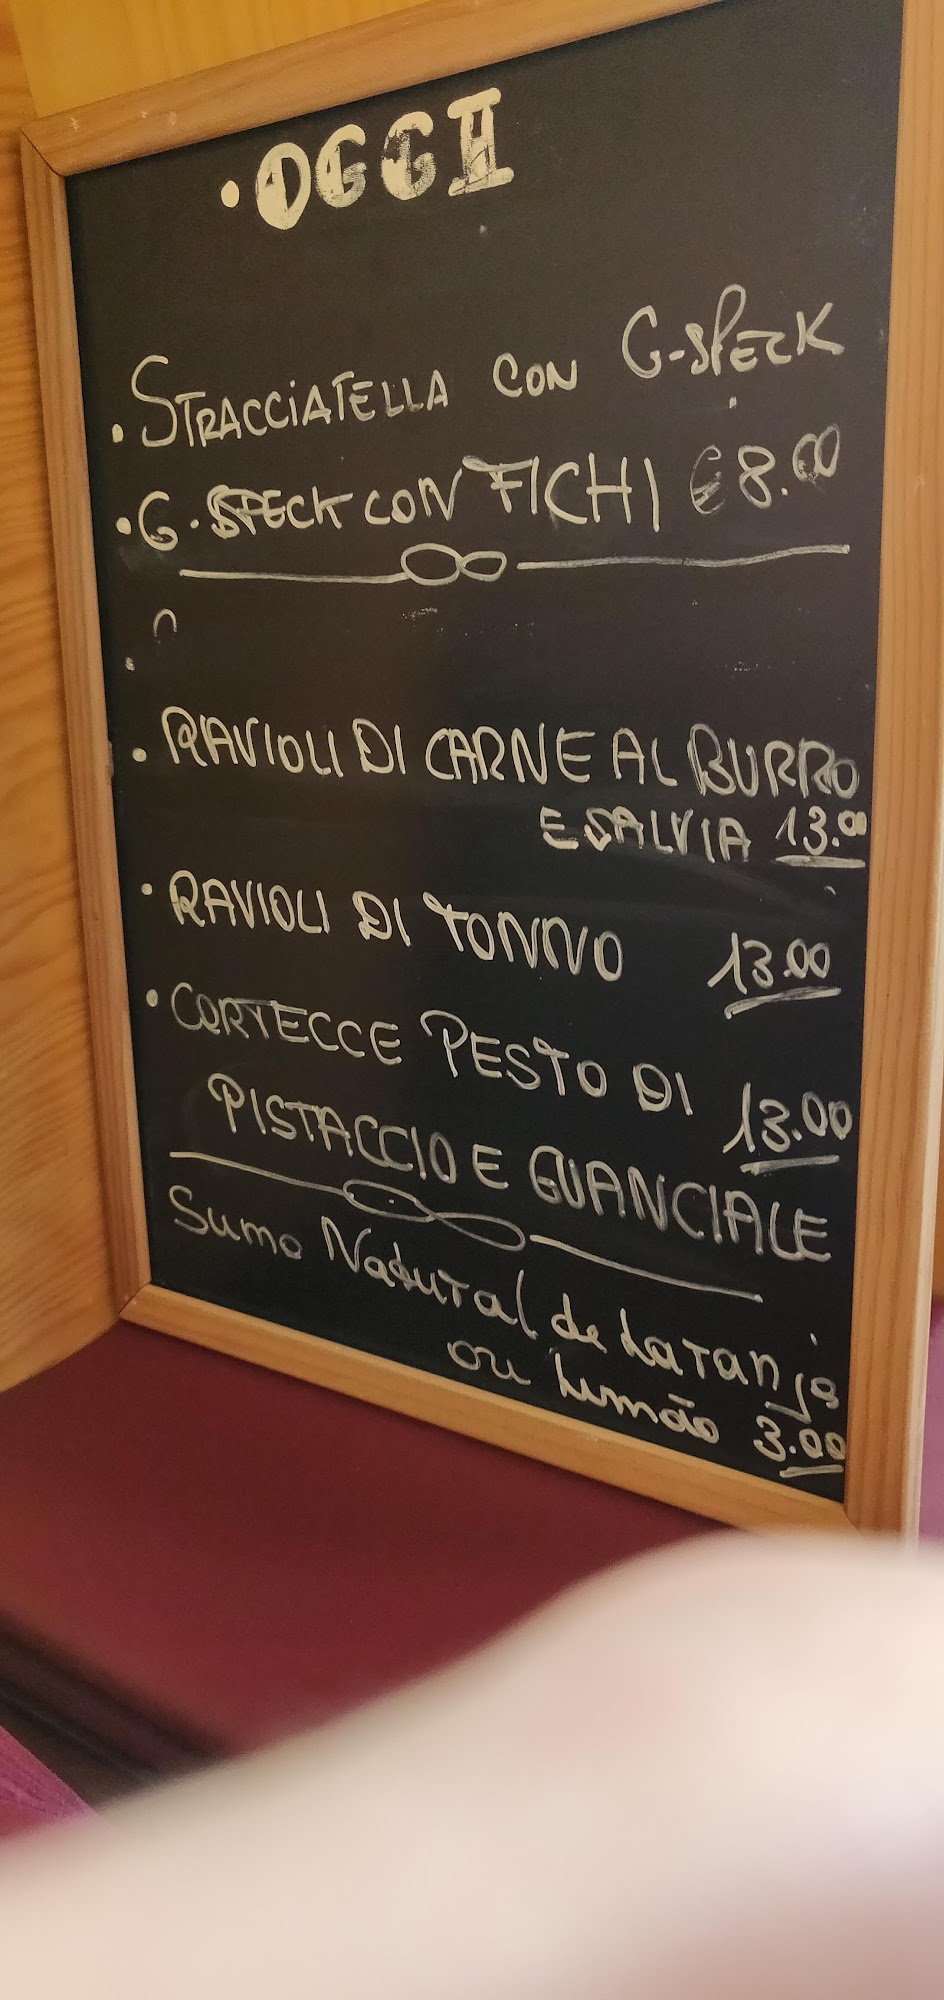 • OGGI
• STRACCIATELLA CON G-SPECK
• G. SPECK CON FICHI € 8.00
• RAVIOLI DI CARNE AL BURRO
E SALVIA 13.00
• RAVIOLI DI TONNO 13.00
• CORTECCE PESTO DI
PISTACCIO E GUANCIALE 13.00
Sumo Natural de Laranja
ou Limão 3.00